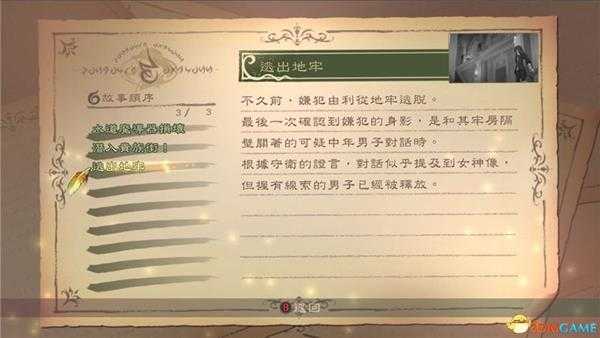 逃出地牢
故事順序
3 / 3
水道魔導器損壞
潛入貴族街！
逃出地牢
不久前，嫌犯由利從地牢逃脫。
最後一次確認到嫌犯的身影，是和其牢房隔
壁關著的可疑中年男子對話時。
根據守衛的證言，對話似乎提及到女神像，
但握有線索的男子已經被釋放。
B 返回
GAME